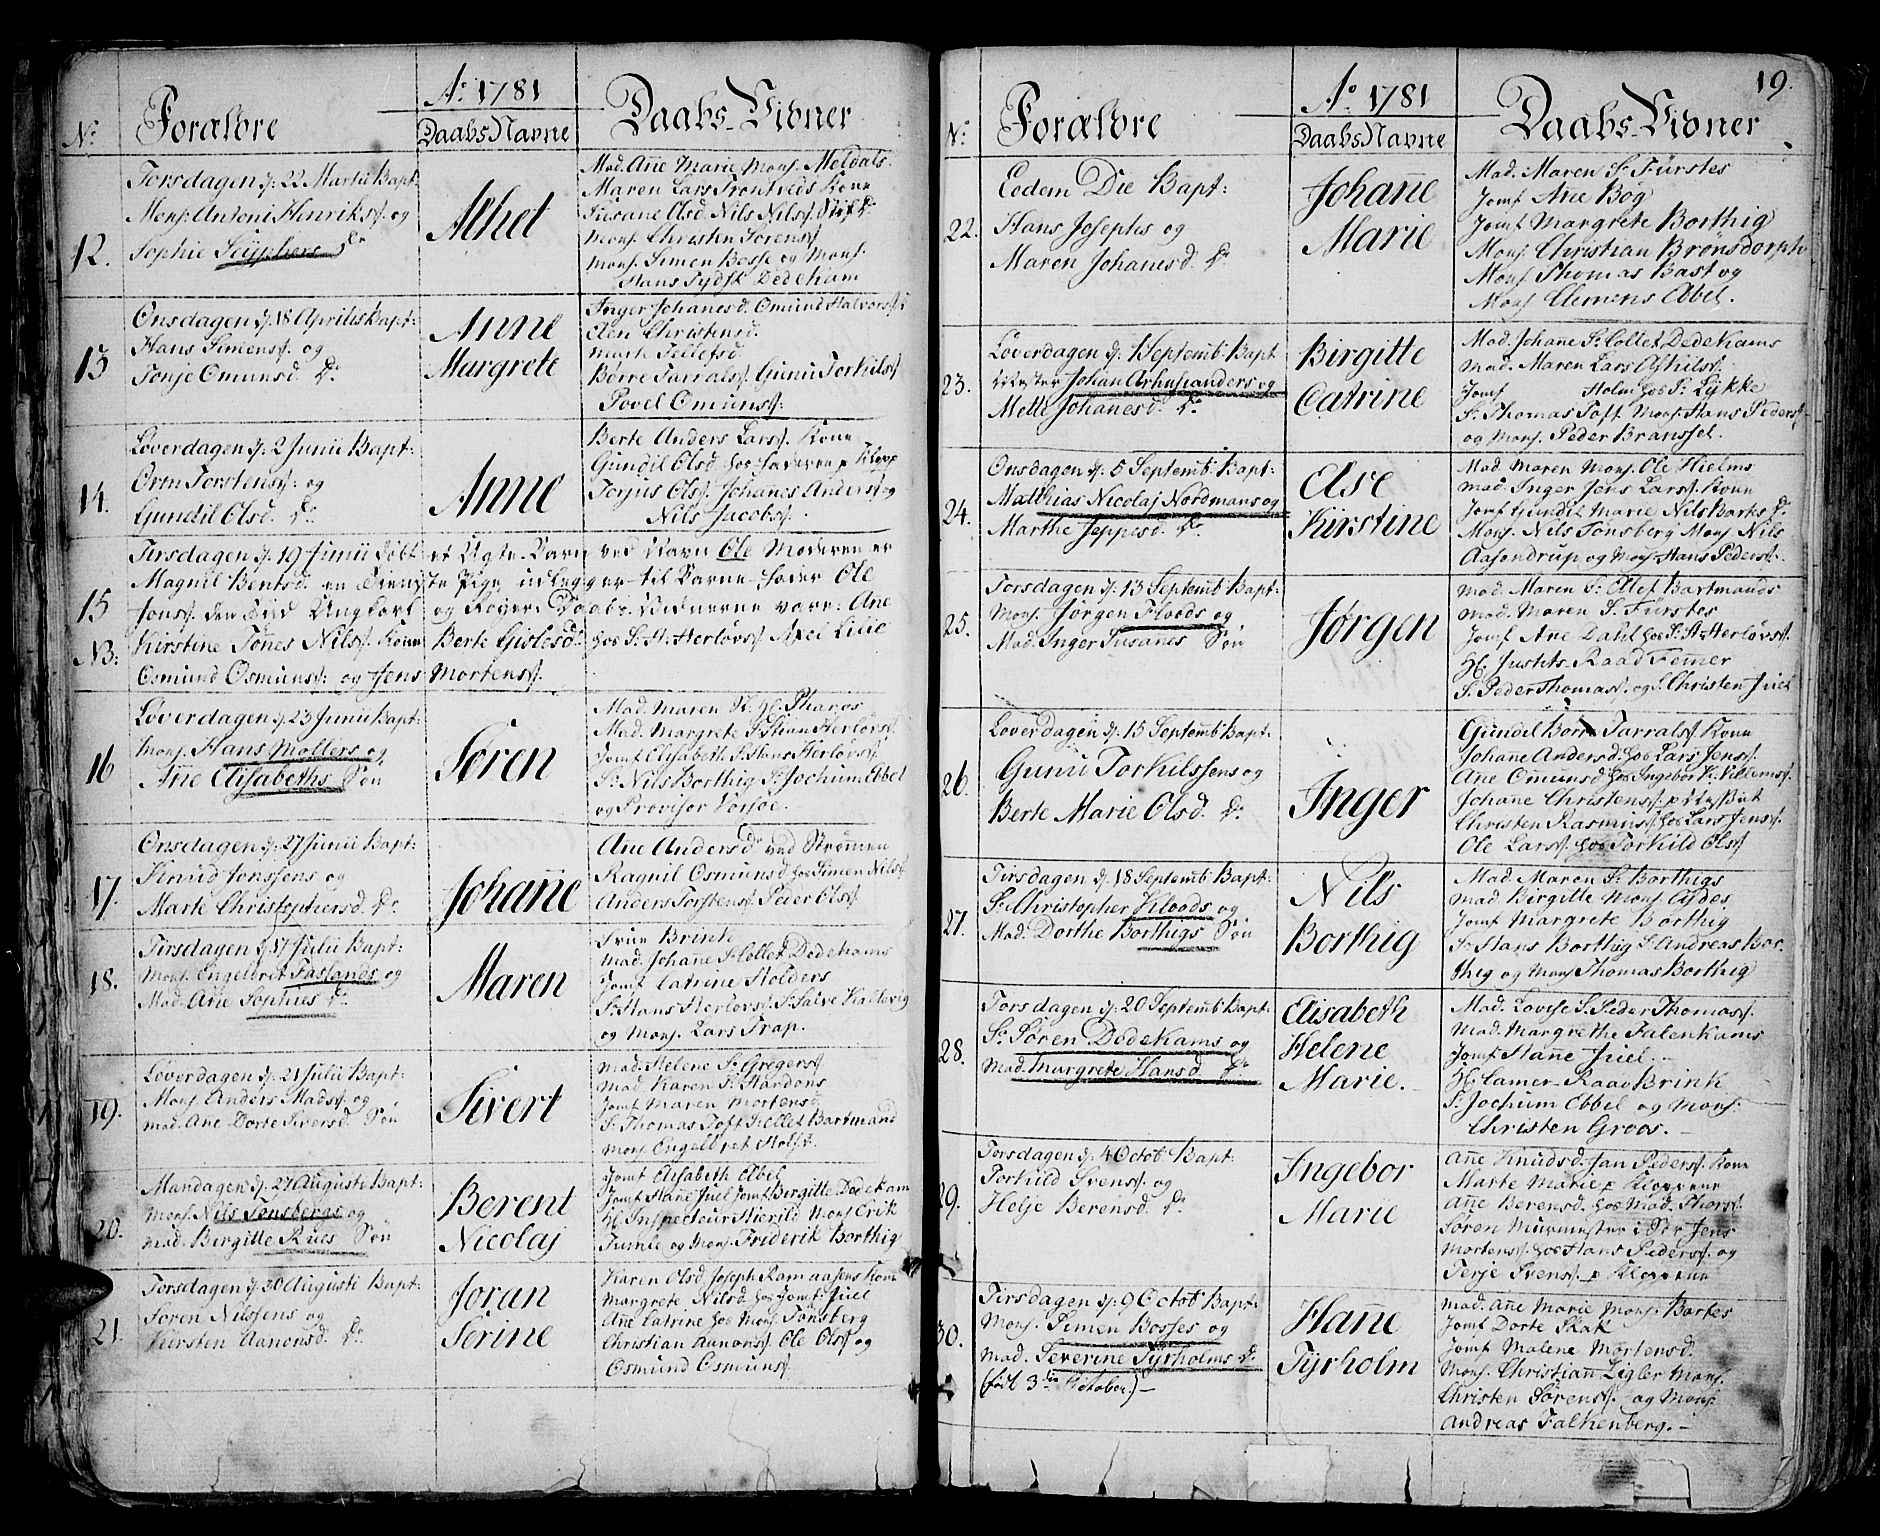 Aº 1781
Nº Forældre Daabs Navne Daabs-Vidner
12.
Torsdagen d: 22 Martii Bapt:
Mons: Antoni Henrikss. og
Sophie Seyphers Dr
Alhet
Mad. Ane Marie Mons. Meldals
Maren Lars Trontveds Kone
Susane Olsd. Nils Nilss.
Mons. Christen Sørenss.
Mons. Simen Bosse og Mons.
Hans Tydsk Dedekam
13
Onsdagen d: 18 Aprilis Bapt:
Hans Simenss. og
Tonje Omunsd. Dr
Anne
Margrete
Inger Johanesd. Omund Halvorss.
Elen Christensd.
Marte Tellefsd.
Børre Tarralss. Gunu Torkilss.
Povel Omunss.
14.
Løverdagen d: 2 Junii Bapt:
Orm Torstenss: og
Gundil Olsd. Dr
Anne
Berte Anders Larss. Kone
Gundil Olsd. hos Faderen p Klopp
Torjus Olss. Johannes Anderss. og
Nils Jacobss.
15
NB:
Tirsdagen d: 19 Junii døbt et Uægte Barn ved Navn Ole Moderen er
Magnil Bentsd. en Tieneste Pige, udlegger til Barne-Fader Ole
Jonss. den Tid Ungkarl og Røger: Daabs-Vidnerne vare: Ane
Kirstine Tønes Nilss. Kone Berte Gislesd. hos S. H. Herløvss. Axel Lilie
Osmund Osmunss: og Jens Mortenss.
16
Løverdagen d: 23 Junii Bapt:
Mons. Hans Møllers og
Ane Elisabeths Søn
Søren
Mad. Maren Pharos
Mad. Margrete S. Stian Herløvss.
Jomf. Elisabeth S. Stans Herløvss.
Sr. Nils Borthig Sr. Jochum Ebbel
og Provisor Vorsøe.
17.
Onsdagen d: 27 Junii Bapt:
Knud Jonssens og
Marte Christophersd. Dr
Johañe
Ane Andersdr ved Strømmen
Ragnil Osmunsd. hos Simen Nilss.
Anders Torstenss. Peder Olss.
18.
Tirsdagen d: 17 Julii Bapt:
Mons. Engelbret Fastenes og
Mad. Ane Sophies Dr
Maren
Frue Brink
Mad. Johañe S. Collet Dedekams
Jomf. Catrine Holders
S. Hans Herløvss. S. Salve Kallevig
og Mons. Lars Trap.
19.
Løverdagen d: 21 Julii Bapt:
Mons. Anders Madss. og
Mad. Ane Dorte Siversd. Søn
Sivert
Mad. Helene S. Gregerss.
Mad. Karen S. Hardons
Jomf. Maren Mortensd.
S. Thomas Toft S. Ellet Bartmand
Mons. Engelbret Holst.
20.
Mandagen d: 27 Augusti Bapt:
Mons. Nils Tønsbergs og
Mad. Birgitte Rues Søn
Berent
Nicolaj
Jomf. Elisabeth Ebel
Jomf. Hañe Juel Jomf. Birgitte Dedekam
H. Inspecteur Hierild Mons. Erik
Tumle og Mons. Friderik Borthig
21.
Torsdagen d: 30 Augusti Bapt:
Søren Nilssens og
Kirsten Aanonsd. Dr
Joran
Serine
Karen Olsd. Joseph Ramaasens Kone
Margrete Nilsd. hos Jomf. Juel
Ane Catrine hos Mons. Tønsberg
Christian Aanonss. Ole Olss. og
Osmund Osmunss.
19.
Aº 1781
Nº Forældre Daabs Navne Daabs-Vidner
22.
Eodem Die Bapt:
Hans Josephs og
Maren Johanesd. Dr
Johañe
Marie
Mad. Maren S. Fürstes
Jomf. Ane Bøg
Jomf. Margrete Borthig
Mons. Christian Brønsdorph
Mons. Thomas Bast og
Mons. Clemens Ebel.
23.
Løverdagen d: 1 Septemb: Bapt
Mester Johan Arhusianders og
Mette Johanesd. Dr
Birgitte
Catrine
Mad. Johañe S. Collet Dedekams
Mad. Maren Lars Eskilss.
Jomf. Holm hos S. Lykke
S. Thomas Toft Mons. Hans Pederss.
og Mons. Peder Branssel.
24.
Onsdagen d: 5 Septemb: Bapt:
Matthias Nicolaj Nordmans og
Marthe Jeppesd. Dr
Else
Kirstine
Mad. Maren Mons. Ole Hielms
Mad. Inger Jens Larss. Kone
Jomf. Gundil Marie Nils Barks Dr
Mons. Nils Tønsberg Mons. Nils
Aasendrup og Mons. Hans Pederss.
25.
Torsdagen d: 13 Septemb: Bapt:
Mons. Jørgen Floods og
Mad. Inger Susanes Søn
Jørgen
Mad. Maren S. Elet Bartmands
Mad. Maren S. Fürstes
Jomf. Ane Dahl hos S. H. Herløvss.
H. Justits Raad Femmer
S. Peder Thomass. og S. Christen Juel
26.
Løverdagen d: 15 Septemb: Bapt:
Gunu Torkilssens og
Berte Marie Olsd. Dr
Inger
Gundel Børre Tarralss. Kone
Johañe Andersd. hos Lars Jenss.
Ane Omunsd. hos Ingebor Villumss.
Johañe Christenss.
Christen Rasmuss. hos Lars Jenss.
Ole Larss. hos Torkild Olss
27.
Tirsdagen d: 18 Septemb: Bapt:
S. Christopher Floods og
Mad. Dorthe Borthigs Søn
Nils
Borthig
Mad. Maren S. Borthigs
Mad. Birgitte Mons. Eydes
Jomf. Margrete Borthig
S. Hans Borthig S. Andreas Bor-
thig og Mons. Thomas Borthig
28.
Torsdagen d: 20 Septemb: Bapt:
Sr. Søren Dedekams og
Mad. Margrete Hansd. Dr
Elisabeth
Helene
Marie.
Mad. Lovise S. Peder Thomass.
Mad. Margrethe Falenkams
Jomf. Hañe Juel.
H. Camer-Raad Brink
S. Jochum Ebbel og Mons.
Christen Groos.
29.
Torsdagen d: 4 Octob: Bapt:
Torkild Svenss. og
Helje Berensd. Dr
Ingebor
Marie
Añe Knudsd. Jan Pederss. Kone
Marte Marie p Kloppene
Añe Berensd. hos Mad. Thorss.
Søren Muurmester Jens
Mortenss. hos Hans Pederss. og
Terje Svenss. p Kloppene
30.
Tirsdagen d: 9 Octob: Bapt:
Mons. Simen Bosses og
Mad. Severine Tyrholms Dr
(født 3die October)
Hañe
Tyrholm
Mad. Añe Marie Mons. Barkes
Jomf. Dorte Skak
Jomf. Malene Mortensd.
Mons. Christian Ligler Mons.
Christen Sørenss. og Mons.
Andreas Falkenberg.